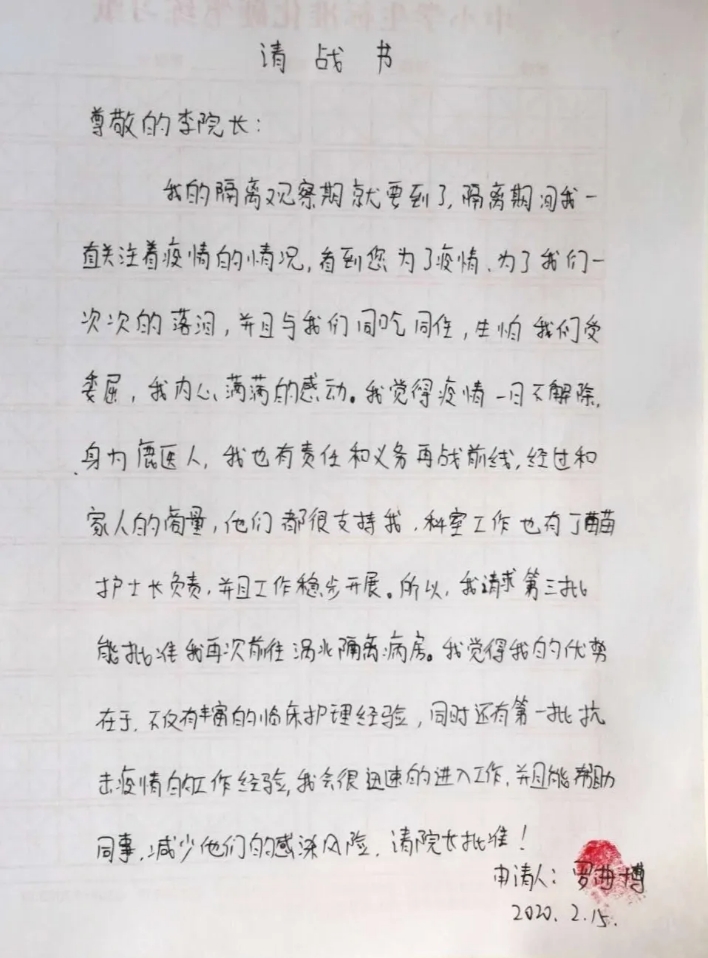 请战书
尊敬的李院长：
我的隔离观察期就要到了，隔离期间我一
直关注着疫情的情况，看到您为了疫情、为了我们一
次次的落泪，并且与我们同吃同住，生怕我们受
委屈，我内心满满的感动。我觉得疫情一日不解除，
身为鹿医人，我也有责任和义务再战前线，经过和
家人的商量，他们都很支持我，科室工作也有丁
护士长负责，并且工作稳步开展。所以，我请求第三批
能批准我再次前往涡北隔离病房。我觉得我的优势
在于，不仅有丰富的临床护理经验，同时还有第一批抗
击疫情的工作经验，我会很迅速的进入工作，并且能帮助
同事，减少他们的感染风险，请院长批准！
申请人：罗曲博
2020.2.15.